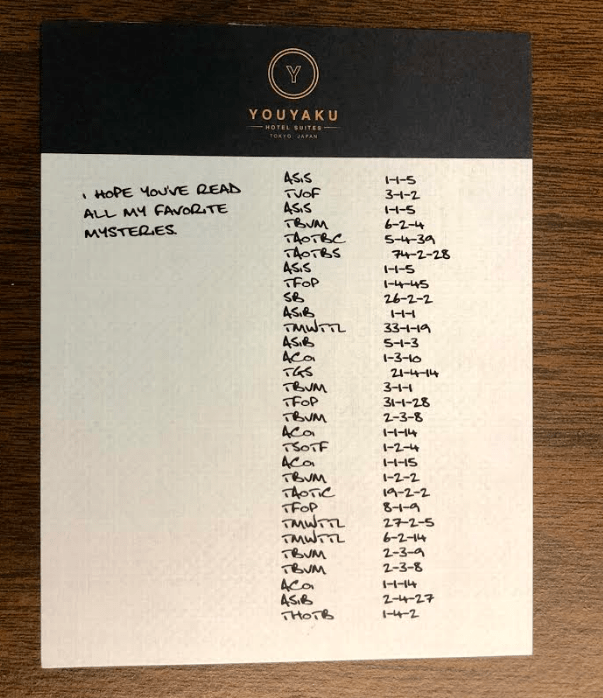 Y
YOUYAKU
HOTEL SUITES
TOKYO, JAPAN
I HOPE YOU'VE READ
ALL MY FAVORITE
MYSTERIES.
ASiS 1-1-5
TVOF 3-1-2
ASiS 1-1-5
TBVM 6-2-4
TAOTBC 5-4-39
TAOTBS 74-2-28
ASiS 1-1-5
TFOP 1-4-45
SB 26-2-2
ASiB 1-1-1
TMWTTL 33-1-19
ASiB 5-1-3
ACOi 1-3-10
TGS 21-4-14
TBVM 3-1-1
TFOP 31-1-28
TBVM 2-3-8
ACOi 1-1-14
TSOTF 1-2-4
ACOi 1-1-15
TBVM 1-2-2
TAOTIC 19-2-2
TFOP 8-1-9
TMWTTL 27-2-5
TMWTTL 6-2-14
TBVM 2-3-9
TBVM 2-3-8
ACOi 1-1-14
ASiB 2-4-27
THOTB 1-4-2